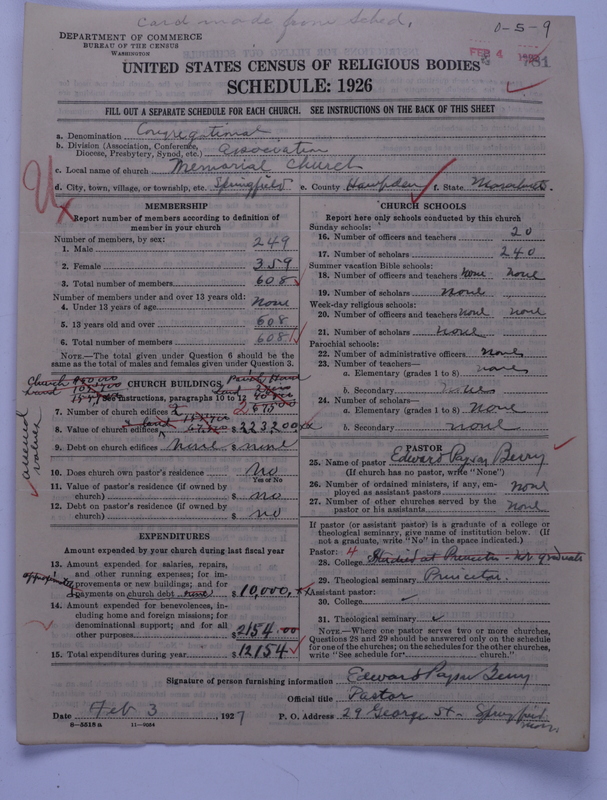 Card made from Sched.
0-5-9
DEPARTMENT OF COMMERCE
BUREAU OF THE CENSUS
WASHINGTON
FEB 4
781
UNITED STATES CENSUS OF RELIGIOUS BODIES
SCHEDULE: 1926
FILL OUT A SEPARATE SCHEDULE FOR EACH CHURCH. SEE INSTRUCTIONS ON THE BACK OF THIS SHEET
a. Denomination Congregational
b. Division (Association, Conference, Diocese, Presbytery, Synod, etc.) Association
c. Local name of church Memorial Church
d. City, town, village, or township, etc. Springfield e. County Hampden f. State
MEMBERSHIP
Report number of members according to definition of
member in your church
Number of members, by sex:
1. Male 249
2. Female 359
3. Total number of members 608
Number of members under and over 13 years old:
4. Under 13 years of age None
5. 13 years old and over 608
6. Total number of members 608
NOTE.—The total given under Question 6 should be
same as the total of males and females given under Question 3.
Church
Land
Parish House
Land
CHURCH BUILDINGS
See instructions, paragraphs 10 to 12
7. Number of church edifices 2
& land
8. Value of church edifices $ 223200
assessed values
9. Debt on church edifices none $ none
10. Does church own pastor's residence No
Yes or No
11. Value of pastor's residence (if owned by
church) $ no
12. Debt on pastor's residence (if owned by
church) $ no
EXPENDITURES
Amount expended by your church during last fiscal year
13. Amount expended for salaries, repairs,
and other running expenses; for im-
provements or new buildings; and for
approximately
payments on church debt none $ 10,000,
14. Amount expended for benevolences, in-
cluding home and foreign missions; for
denominational support; and for all
other purposes $ 2154.00
15. Total expenditures during year $ 12154
CHURCH SCHOOLS
Report here only schools conducted by this church
Sunday schools:
16. Number of officers and teachers 20
17. Number of scholars 240
Summer vacation Bible schools:
18. Number of officers and teachers none none
19. Number of scholars none
Week-day religious schools:
20. Number of officers and teachers none none
21. Number of scholars none
Parochial schools:
22. Number of administrative officers none
23. Number of teachers—
a. Elementary (grades 1 to 8) none
b. Secondary none
24. Number of scholars—
a. Elementary (grades 1 to 8) None
b. Secondary none
PASTOR
25. Name of pastor Edward Payson Berry
(If church has no pastor, write "None")
26. Number of ordained ministers, if any, em-
ployed as assistant pastors None
27. Number of other churches served by the
pastor or his assistants None
If pastor (or assistant pastor) is a graduate of a college or
theological seminary, give name of institution below. (If
not a graduate, write "No" in the space indicated.)
Pastor: 4
28. College Studied at Princeton - not graduate
29. Theological seminary Princeton
Assistant pastor:
30. College
31. Theological seminary
NOTE.—Where one pastor serves two or more churches,
Questions 28 and 29 should be answered only on the schedule
for one of the churches; on the schedules for the other churches,
write "See schedule for church."
Signature of person furnishing information Edward Payson Berry
Official title Pastor
Date Feb 3, 1927 P. O. Address 29 George St - Springfield
Mass
8-5518 a 11-9054